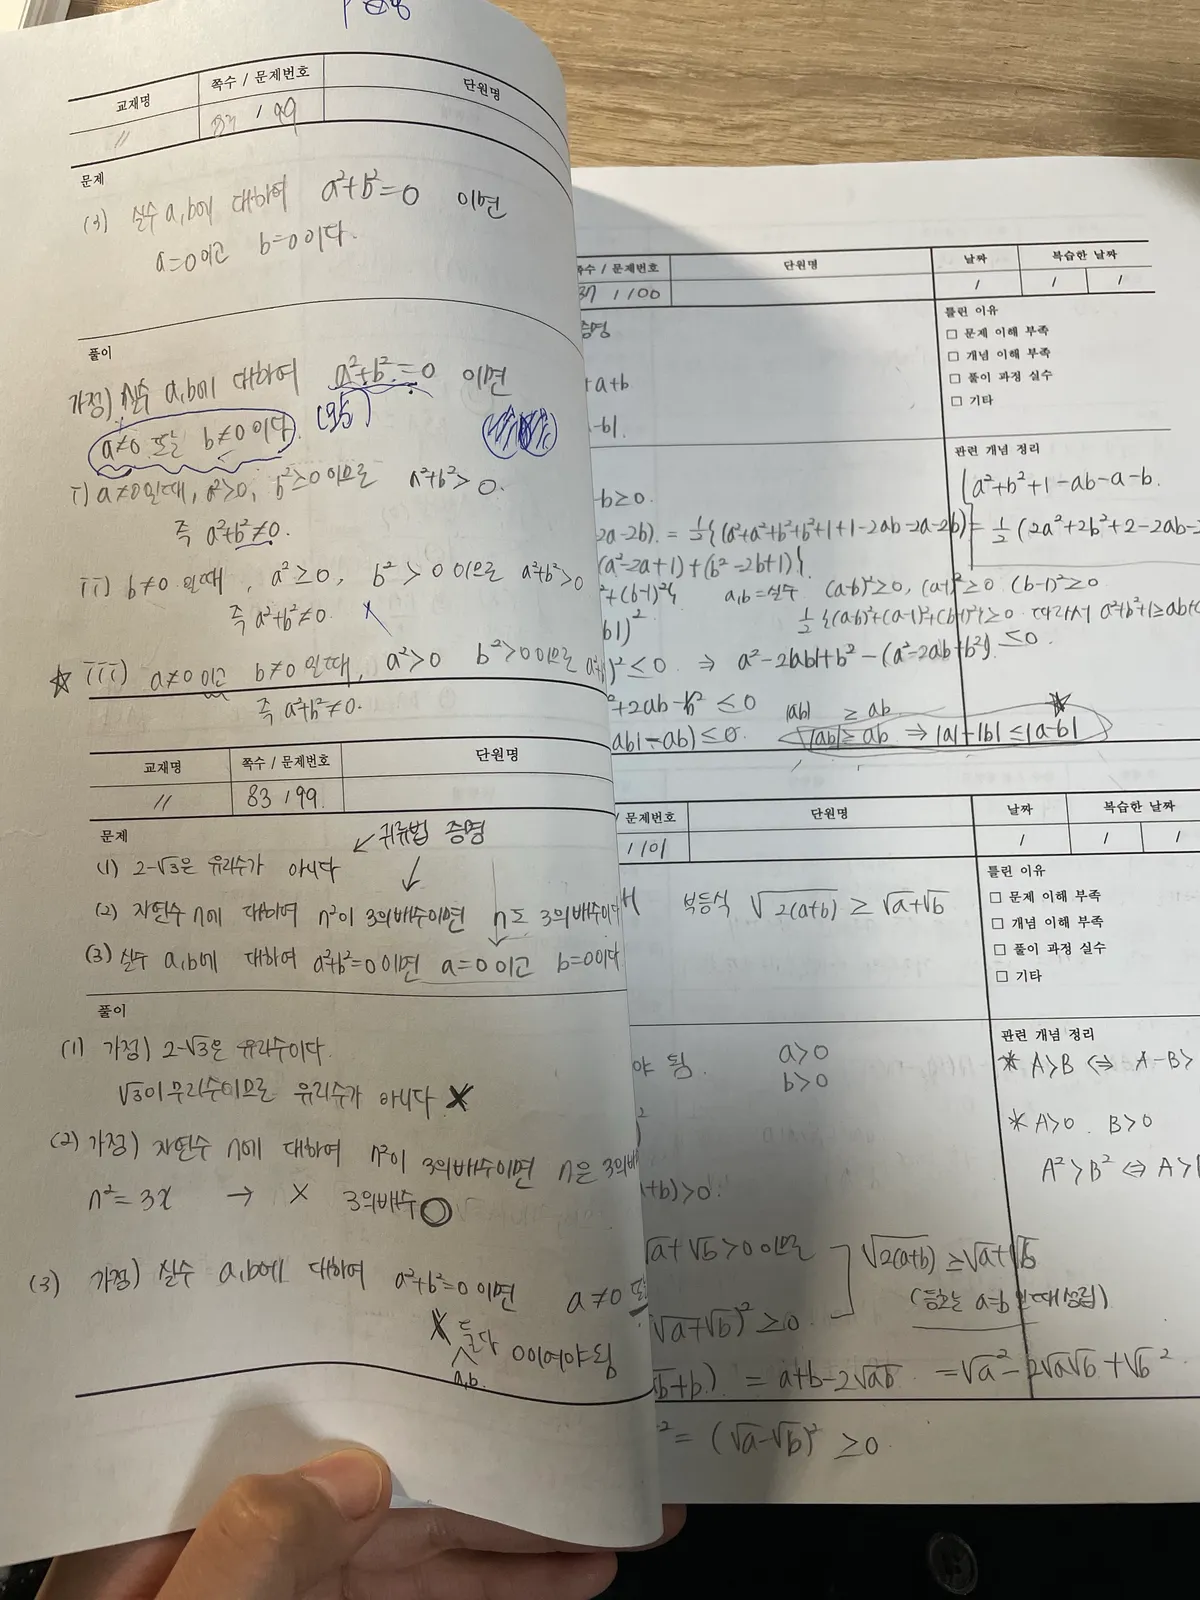 교재명 쪽수 / 문제번호 단원명
〃 83 / 99
문제
(3) 실수 a,b에 대하여 a²+b²=0 이면
a=0이고 b=0이다.
풀이
가정) 실수 a,b에 대하여 a²+b²=0 이면
a≠0 또는 b≠0이다. (모순)
i) a≠0일때, a²>0, b²≥0이므로 a²+b²>0.
즉 a²+b²≠0.
ii) b≠0 일때, a²≥0, b²>0이므로 a²+b²>0
즉 a²+b²≠0.
☆ iii) a≠0이고 b≠0일때, a²>0 b²>0이므로
즉 a²+b²≠0.
교재명 쪽수 / 문제번호 단원명
〃 83 / 99
문제
↙ 귀류법 증명
(1) 2-√3은 유리수가 아니다
(2) 자연수 n에 대하여 n²이 3의배수이면 n도 3의배수이다
(3) 실수 a,b에 대하여 a²+b²=0이면 a=0이고 b=0이다
풀이
(1) 가정) 2-√3은 유리수이다.
√3이 무리수이므로 유리수가 아니다 X
(2) 가정) 자연수 n에 대하여 n²이 3의배수이면 n은 3의배
n²=3x → X 3의배수 O
(3) 가정) 실수 a,b에 대하여 a²+b²=0이면 a≠0 또
X 둘다 0이여야됨
a,b.
쪽수 / 문제번호 단원명 날짜 복습한 날짜
37 / 100 / / /
증명
+a+b
-b|.
틀린 이유
□ 문제 이해 부족
□ 개념 이해 부족
□ 풀이 과정 실수
□ 기타
관련 개념 정리
a²+b²+1-ab-a-b.
-b≥0.
2a-2b). = ½{(a²+a²+b²+b²+1+1-2ab-2a-2b) = ½(2a²+2b²+2-2ab-2
(a²-2a+1)+(b²-2b+1)}.
²+(b-1)²} a,b=실수 (a-b)²≥0, (a-1)²≥0 (b-1)²≥0
½{(a-b)²+(a-1)²+(b-1)²}≥0 따라서 a²+b²+1≥ab+
b|)²
)²≤0. ⇒ a²-2|ab|+b²-(a²-2ab+b²)≤0
²+2ab-b²≤0 |ab| ≥ ab
ab|-ab)≤0. |ab|≥ab ⇒ |a|-|b|≤|a-b| ☆
/ 문제번호 단원명 날짜 복습한 날짜
/ 101 / / /
부등식 √2(a+b) ≥ √a+√b
틀린 이유
□ 문제 이해 부족
□ 개념 이해 부족
□ 풀이 과정 실수
□ 기타
관련 개념 정리
* A>B ⇔ A-B>
* A>0. B>0
A²>B² ⇔ A>
야 됨. a>0
b>0
+b)>0.
√a+√b>0이므로 √2(a+b) ≥√a+√b
(등호는 a=b 일때성립)
√a-√b)²≥0.
√b+b) = a+b-2√ab = √a²-2√a√b+√b²
² = (√a-√b)² ≥0.